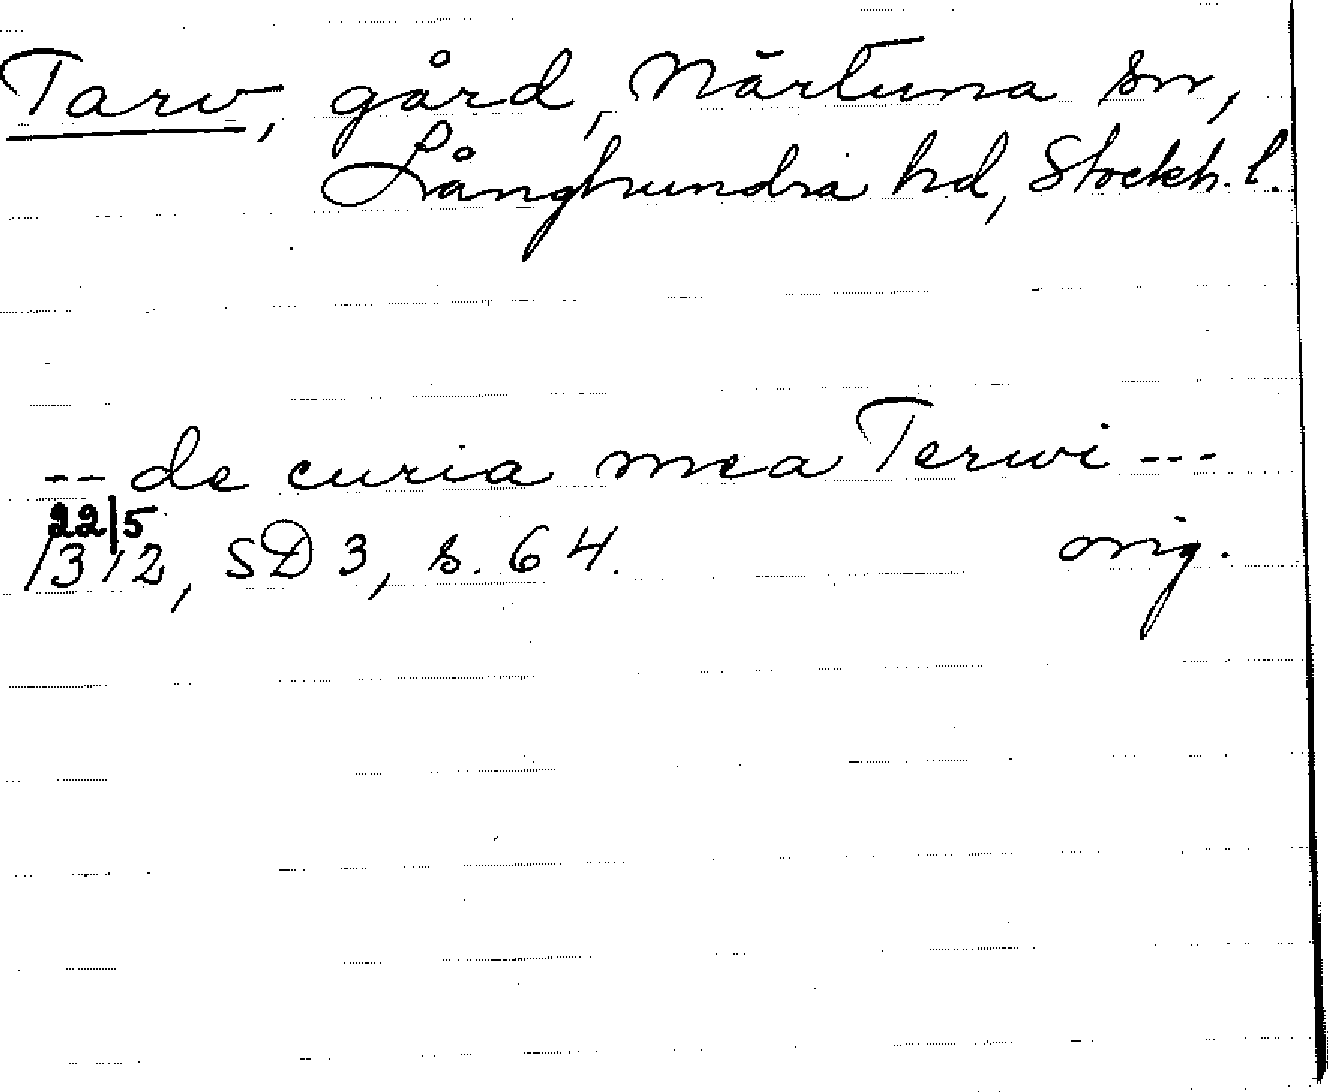 Tarv, gård, Närtuna sn,
Långhundra hd, Stockh. l.
-- de curia mea Terwi ---
22/5
1312, SD 3, s. 64. orig.